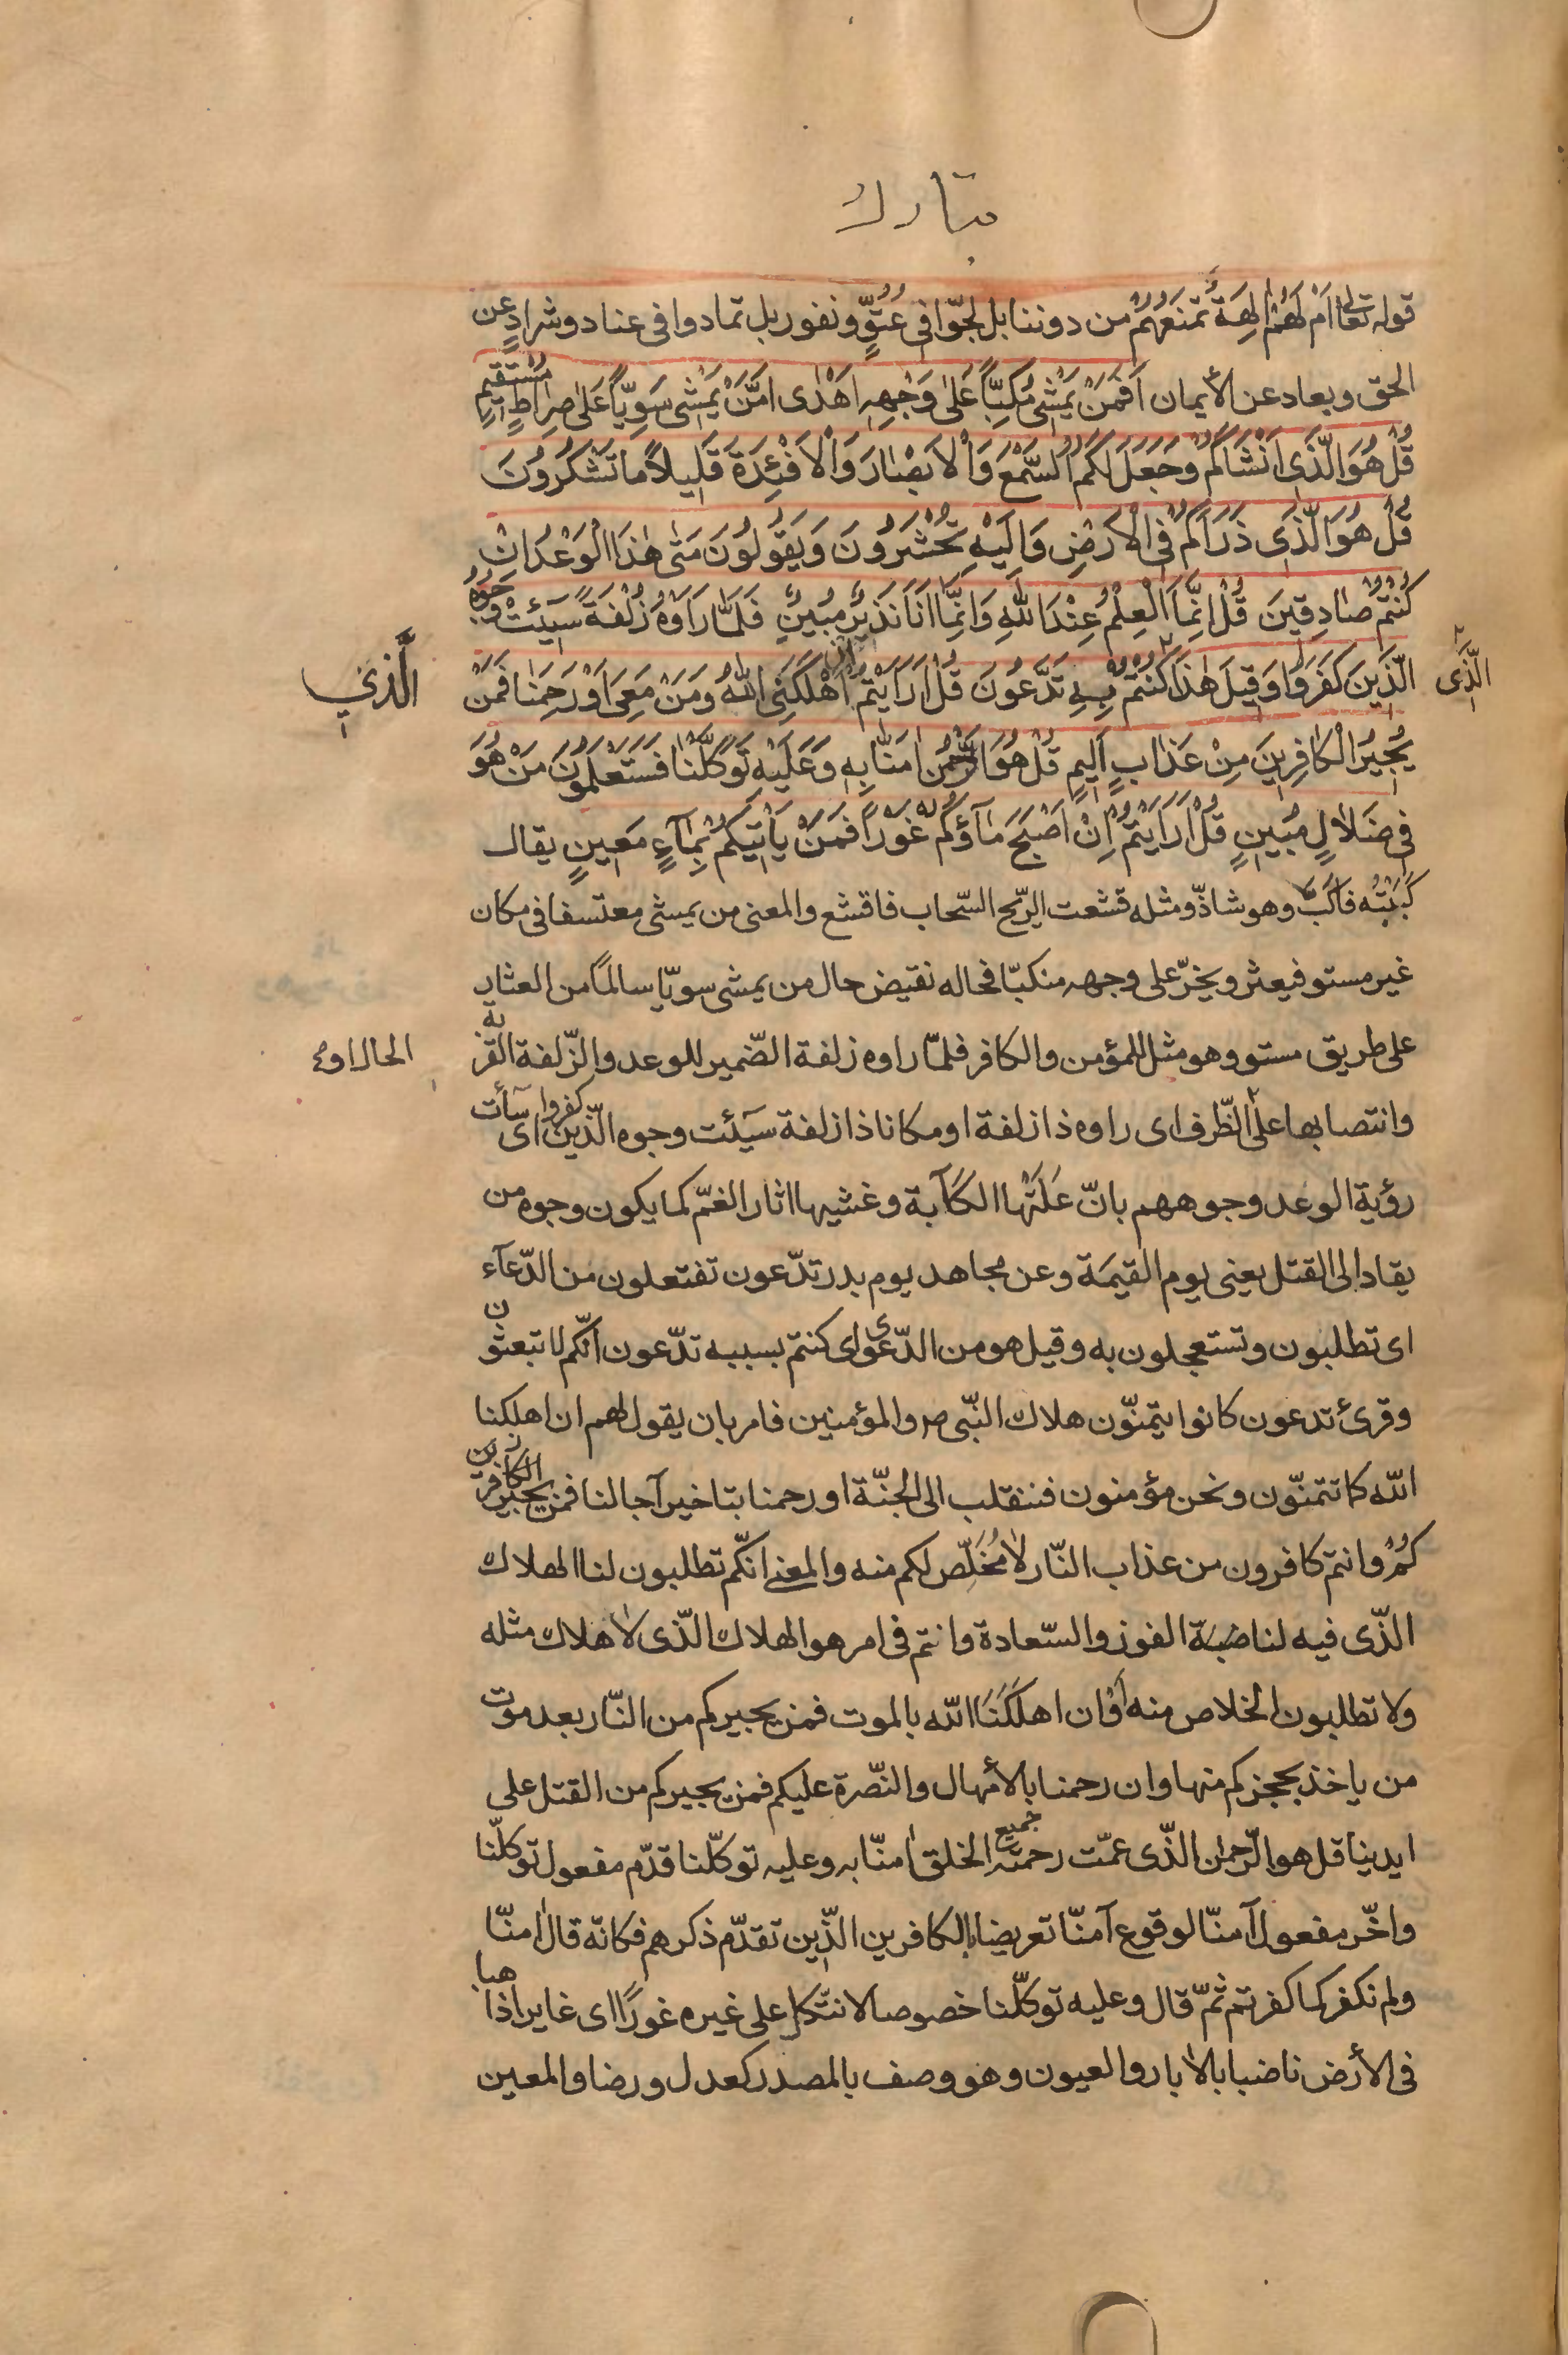 تبارك
قوله تعالى اَمْ لَهُمْ اٰلِهَةٌ تَمْنَعُهُمْ من دوننا بل لجّوا فى عُتُوٍّ ونفور بل تمادوا فى عناد وشرادٍ عن
الحق وبعاد عن الأيمان اَفَمَنْ يَمْشى مُكِبّاً عَلٰى وَجْهِهِ اَهْدٰى اَمَّنْ يَمْشى سَوِيّاً عَلٰى صِراطٍ مُسْتَقيمٍ
قُلْ هُوَ الَّذى اَنْشَاَكُمْ وَجَعَلَ لَكُمُ السَّمْعَ وَالْاَبْصٰارَ وَالْاَفْئِدَةَ قَليلاً ما تَشْكُرُونَ
قُلْ هُوَ الَّذى ذَرَاَكُمْ فِى الْاَرْضِ وَاِلَيْهِ تُحْشَرُونَ وَيَقُولُونَ مَتٰى هٰذَا الْوَعْدُ اِنْ
كُنْتُمْ صٰادِقينَ قُلْ اِنَّمَا الْعِلْمُ عِنْدَ اللّٰهِ وَاِنَّمٰا اَنَا نَذيرٌ مُبينٌ فَلَمّٰا رَاَوْهُ زُلْفَةً سيٓئَتْ وُجُوهُ
الَّذينَ كَفَرُوا وَقيلَ هٰذَا كُنْتُمْ بِهِ تَدَّعُونَ قُلْ اَرَاَيْتُمْ ان اَهْلَكَنِىَ اللّٰهُ وَمَنْ مَعِىَ اَوْ رَحِمَنٰا فَمَنْ
الَّذى
الَّذي
يُجيرُ الْكٰافِرينَ مِنْ عَذٰابٍ اَليمٍ قُلْ هُوَ الرَّحْمٰنُ اٰمَنّٰا بِهِ وَعَلَيْهِ تَوَكَّلْنٰا فَسَتَعْلَمُونَ مَنْ هُوَ
فى ضَلاٰلٍ مُبينٍ قُلْ اَرَاَيْتُمْ اِنْ اَصْبَحَ مٰآؤُكُمْ غَوْراً فَمَنْ يَاْتيكُمْ بِمٰآءٍ مَعينٍ يقال
كَبَبْتُه فاَكَبَّ وهو شاذّ ومثله قشعت الرّيح السّحاب فاقشع والمعنى من يمشى معتسفا فى مكان
غير مستو فيعثر ويخرّ على وجهه منكبّا فحاله نقيض حال من يمشى سويّا سالماً من العثار
على طريق مستو وهو مثل للمؤمن والكافر فلمّا راوه زلفة الضّمير للوعد والزّلفة القربة
الحال او
وانتصابها على الظّرف اى راوه ذا زلفة او مكانا ذا زلفة سيٓئت وجوه الّذين كفروا اى سآئت
رؤية الوعد وجوههم بانّ عَلَتْهَا الكَآبة وغشيها اثار الغمّ كما يكون وجوه من
يقاد الى القتل يعنى يوم القيمَة وعن مجاهد يوم بدر تدّعون تفتعلون من الدّعآء
اى تطلبون وتستعجلون به وقيل هو من الدّعوى اى كنتم بسببه تدّعون انّكم لا تبعثون
وقرئ تدعون كانوا يتمنّون هلاك النّبى ص والمؤمنين فامر بان يقول لهم ان اهلكنا
اللّه كما تتمنّون ونحن مؤمنون فننقلب الى الجنّة او رحمنا بتاخير آجالنا فمن يجير الكافرين
كُمْ وانتم كافرون من عذاب النّار لا مُخَلِّص لكم منه والمعنى انّكم تطلبون لنا الهلاك
الذّى فيه لنا الفوز والسّعادة وانتم فى امر هو الهلاك الذّى لا هلاك مثله
ولا تطلبون الخلاص منه اَوْ ان اهلَكَنَا اللّه بالموت فمن يجيركم من النّار بعد موت
من ياخذ بحجزكم منها وان رحمنا بالأمهال والنّصرة عليكم فمن يجيركم من القتل على
ايدينا قل هو الرّحمان الذّى عمّت رحمته جميع الخلق اٰمنّا به وعليه توكّلنا قدّم مفعول توكلّنا
واخّر مفعول آمنّا لوقوع آمنّا تعريضا بالكافرين الذّين تقدّم ذكرهم فكانّه قال اٰمنّا
ولم نكفر كما كفرتم ثمّ قال وعليه توكّلنا خصوصا لا نتّكل على غيره غوراً اى غايرا ذاهبا
فى الأرض ناضبا بالابار والعيون وهو وصف بالمصدر كعدل ورضا والمعين